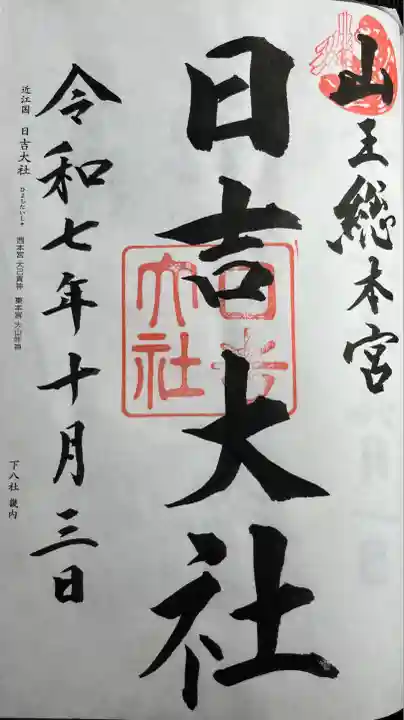 山王総本宮
日吉大社
日吉大社
令和七年十月三日
近江国 日吉大社
ひよしたいしゃ
西本宮 大己貴神 東本宮 大山咋神
下八社 畿内